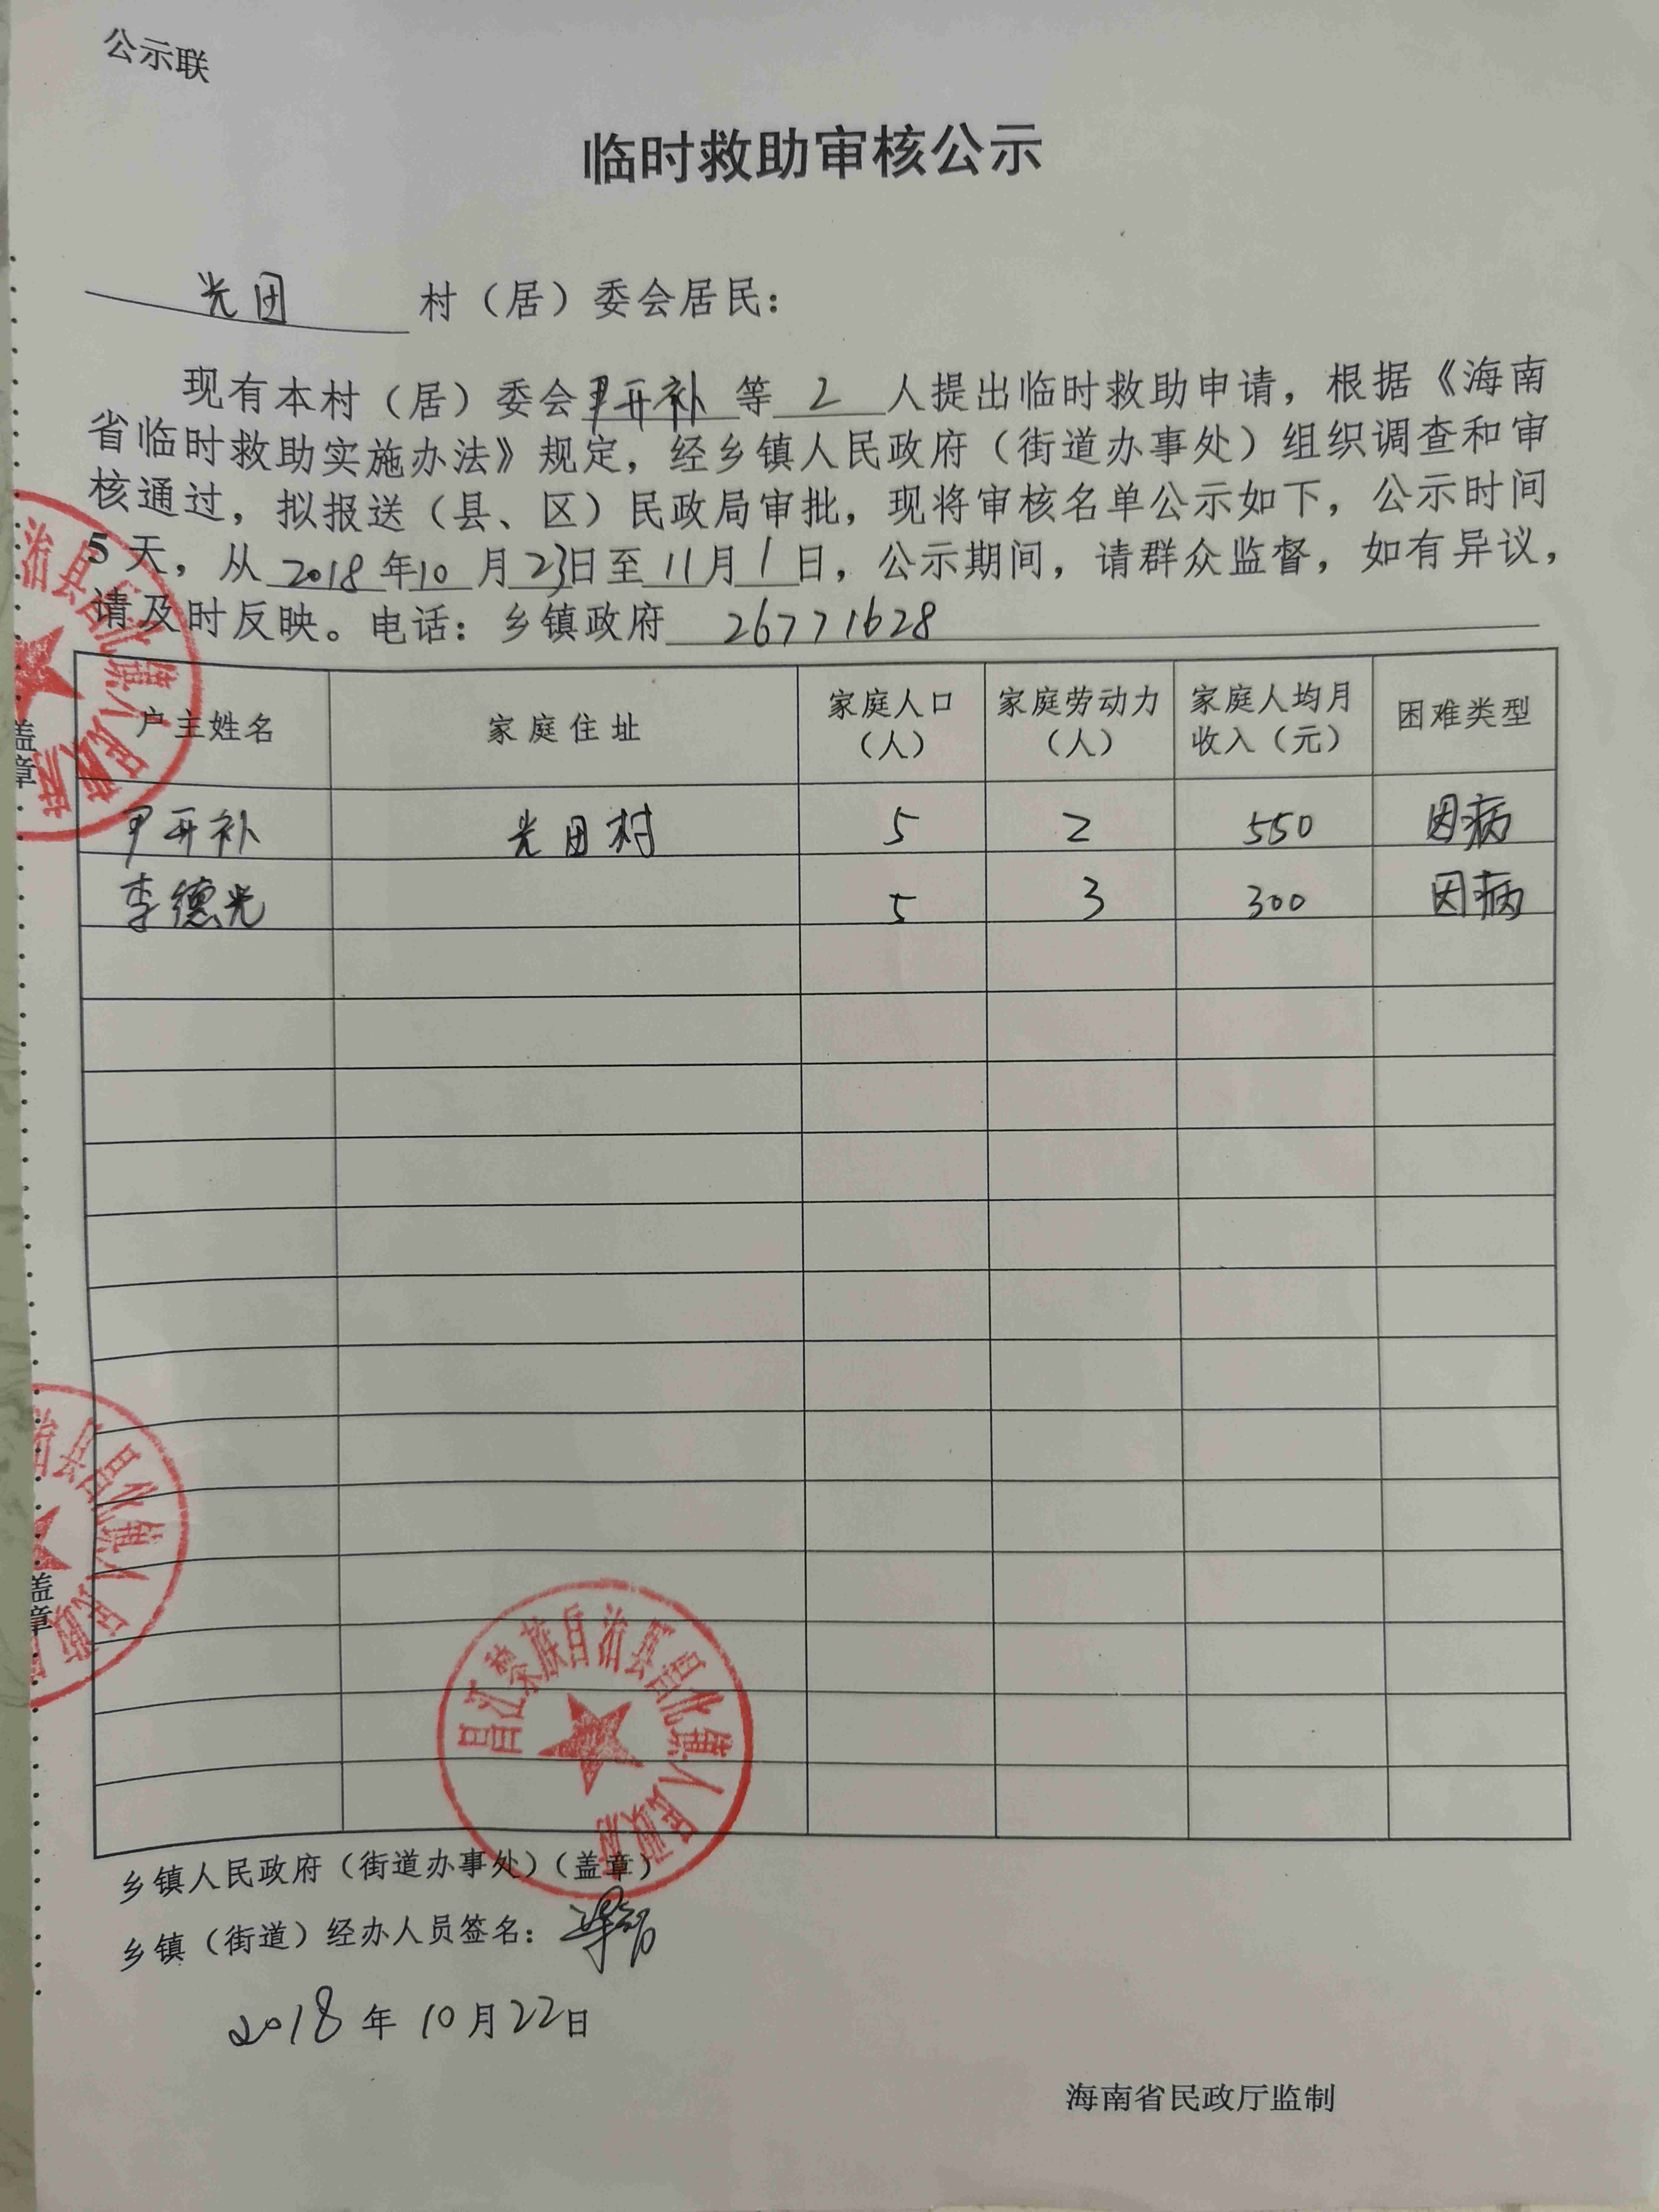 公示联
临时救助审核公示
光田 村（居）委会居民：
现有本村（居）委会尹开补等 2 人提出临时救助申请，根据《海南
省临时救助实施办法》规定，经乡镇人民政府（街道办事处）组织调查和审
核通过，拟报送（县、区）民政局审批，现将审核名单公示如下，公示时间
5天，从 2018 年10 月23日至11月1日，公示期间，请群众监督，如有异议，
请及时反映。电话：乡镇政府 26771628
户主姓名 家庭住址 家庭人口（人） 家庭劳动力（人） 家庭人均月收入（元） 困难类型
尹开补 光田村 5 2 550 因病
李德光 5 3 300 因病
盖章
盖章
昌江黎族自治县昌化镇人民政府
乡镇人民政府（街道办事处）（盖章）
乡镇（街道）经办人员签名：
2018年10月22日
海南省民政厅监制